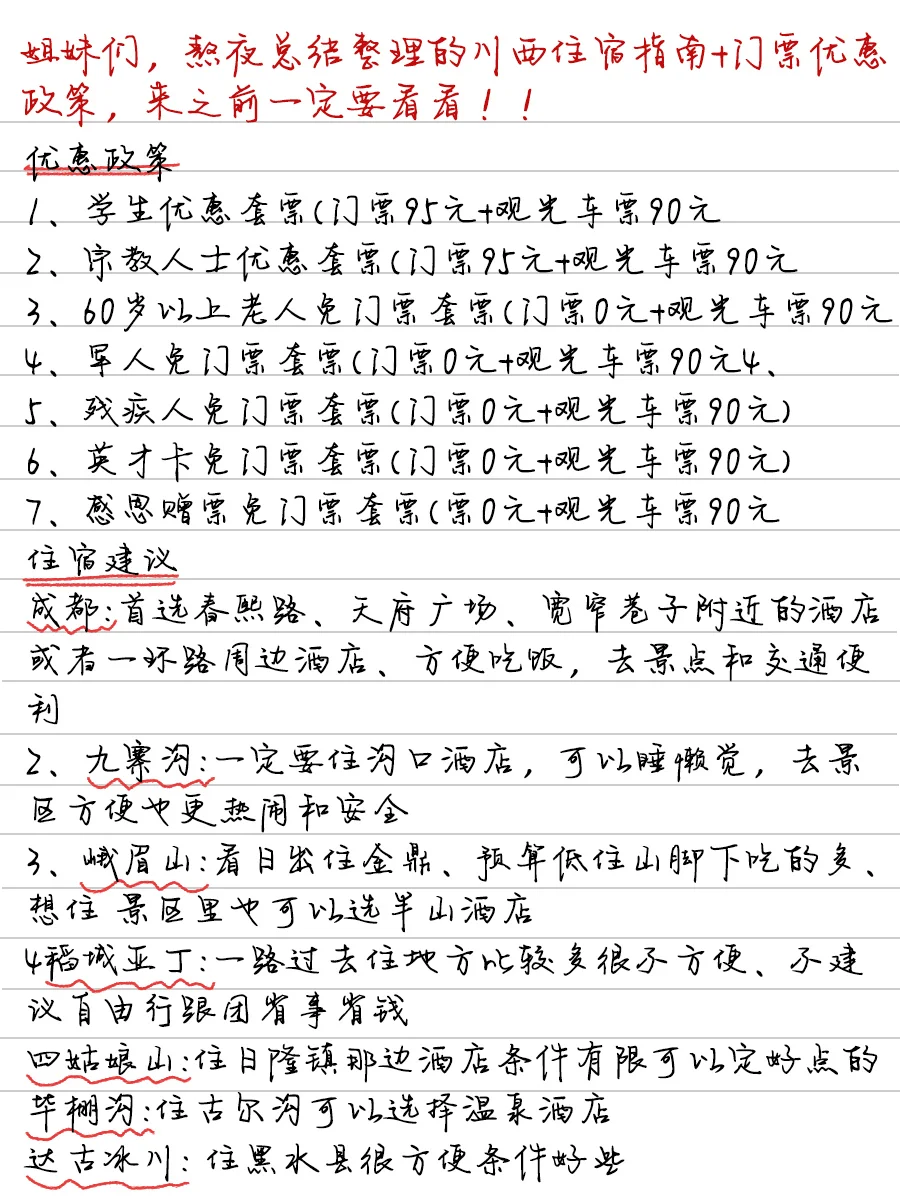 姐妹们，熬夜总结整理的川西住宿指南+门票优惠
政策，来之前一定要看看！！
优惠政策
1、学生优惠套票(门票95元+观光车票90元
2、宗教人士优惠套票(门票95元+观光车票90元
3、60岁以上老人免门票套票(门票0元+观光车票90元
4、军人免门票套票(门票0元+观光车票90元4、
5、残疾人免门票套票(门票0元+观光车票90元)
6、英才卡免门票套票(门票0元+观光车票90元)
7、感恩赠票免门票套票(票0元+观光车票90元
住宿建议
成都:首选春熙路、天府广场、宽窄巷子附近的酒店
或者一环路周边酒店、方便吃饭，去景点和交通便
利
2、九寨沟:一定要住沟口酒店，可以睡懒觉，去景
区方便也更热闹和安全
3、峨眉山:看日出住金鼎、预算低住山脚下吃的多、
想住 景区里也可以选半山酒店
4稻城亚丁:一路过去住地方比较多很不方便、不建
议自由行跟团省事省钱
四姑娘山:住日隆镇那边酒店条件有限可以定好点的
毕棚沟:住古尔沟可以选择温泉酒店
达古冰川:住黑水县很方便条件好些